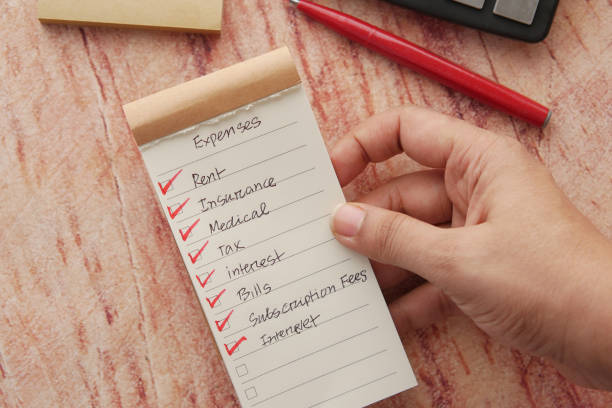 Expenses
Rent
Insurance
Medical
Tax
interest
Bills
Subscription Fees
Internet